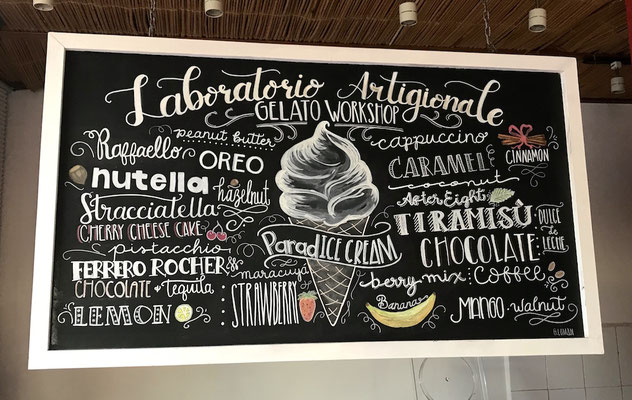 Laboratorio Artigionale
GELATO WORKSHOP
peanut butter
Raffaello
OREO
nutella
hazelnut
Stracciatella
CHERRY CHEESE CAKE
pistacchio
FERRERO ROCHER
CHOCOLATE + Tequila
LEMON
maracuyá
STRAWBERRY
ParadICE CREAM
cappuccino
CINNAMON
CARAMEL
coconut
After Eight
TIRAMISÛ
DULCE de LECHE
CHOCOLATE
berry mix
COFFEE
Banana
MANGO
walnut